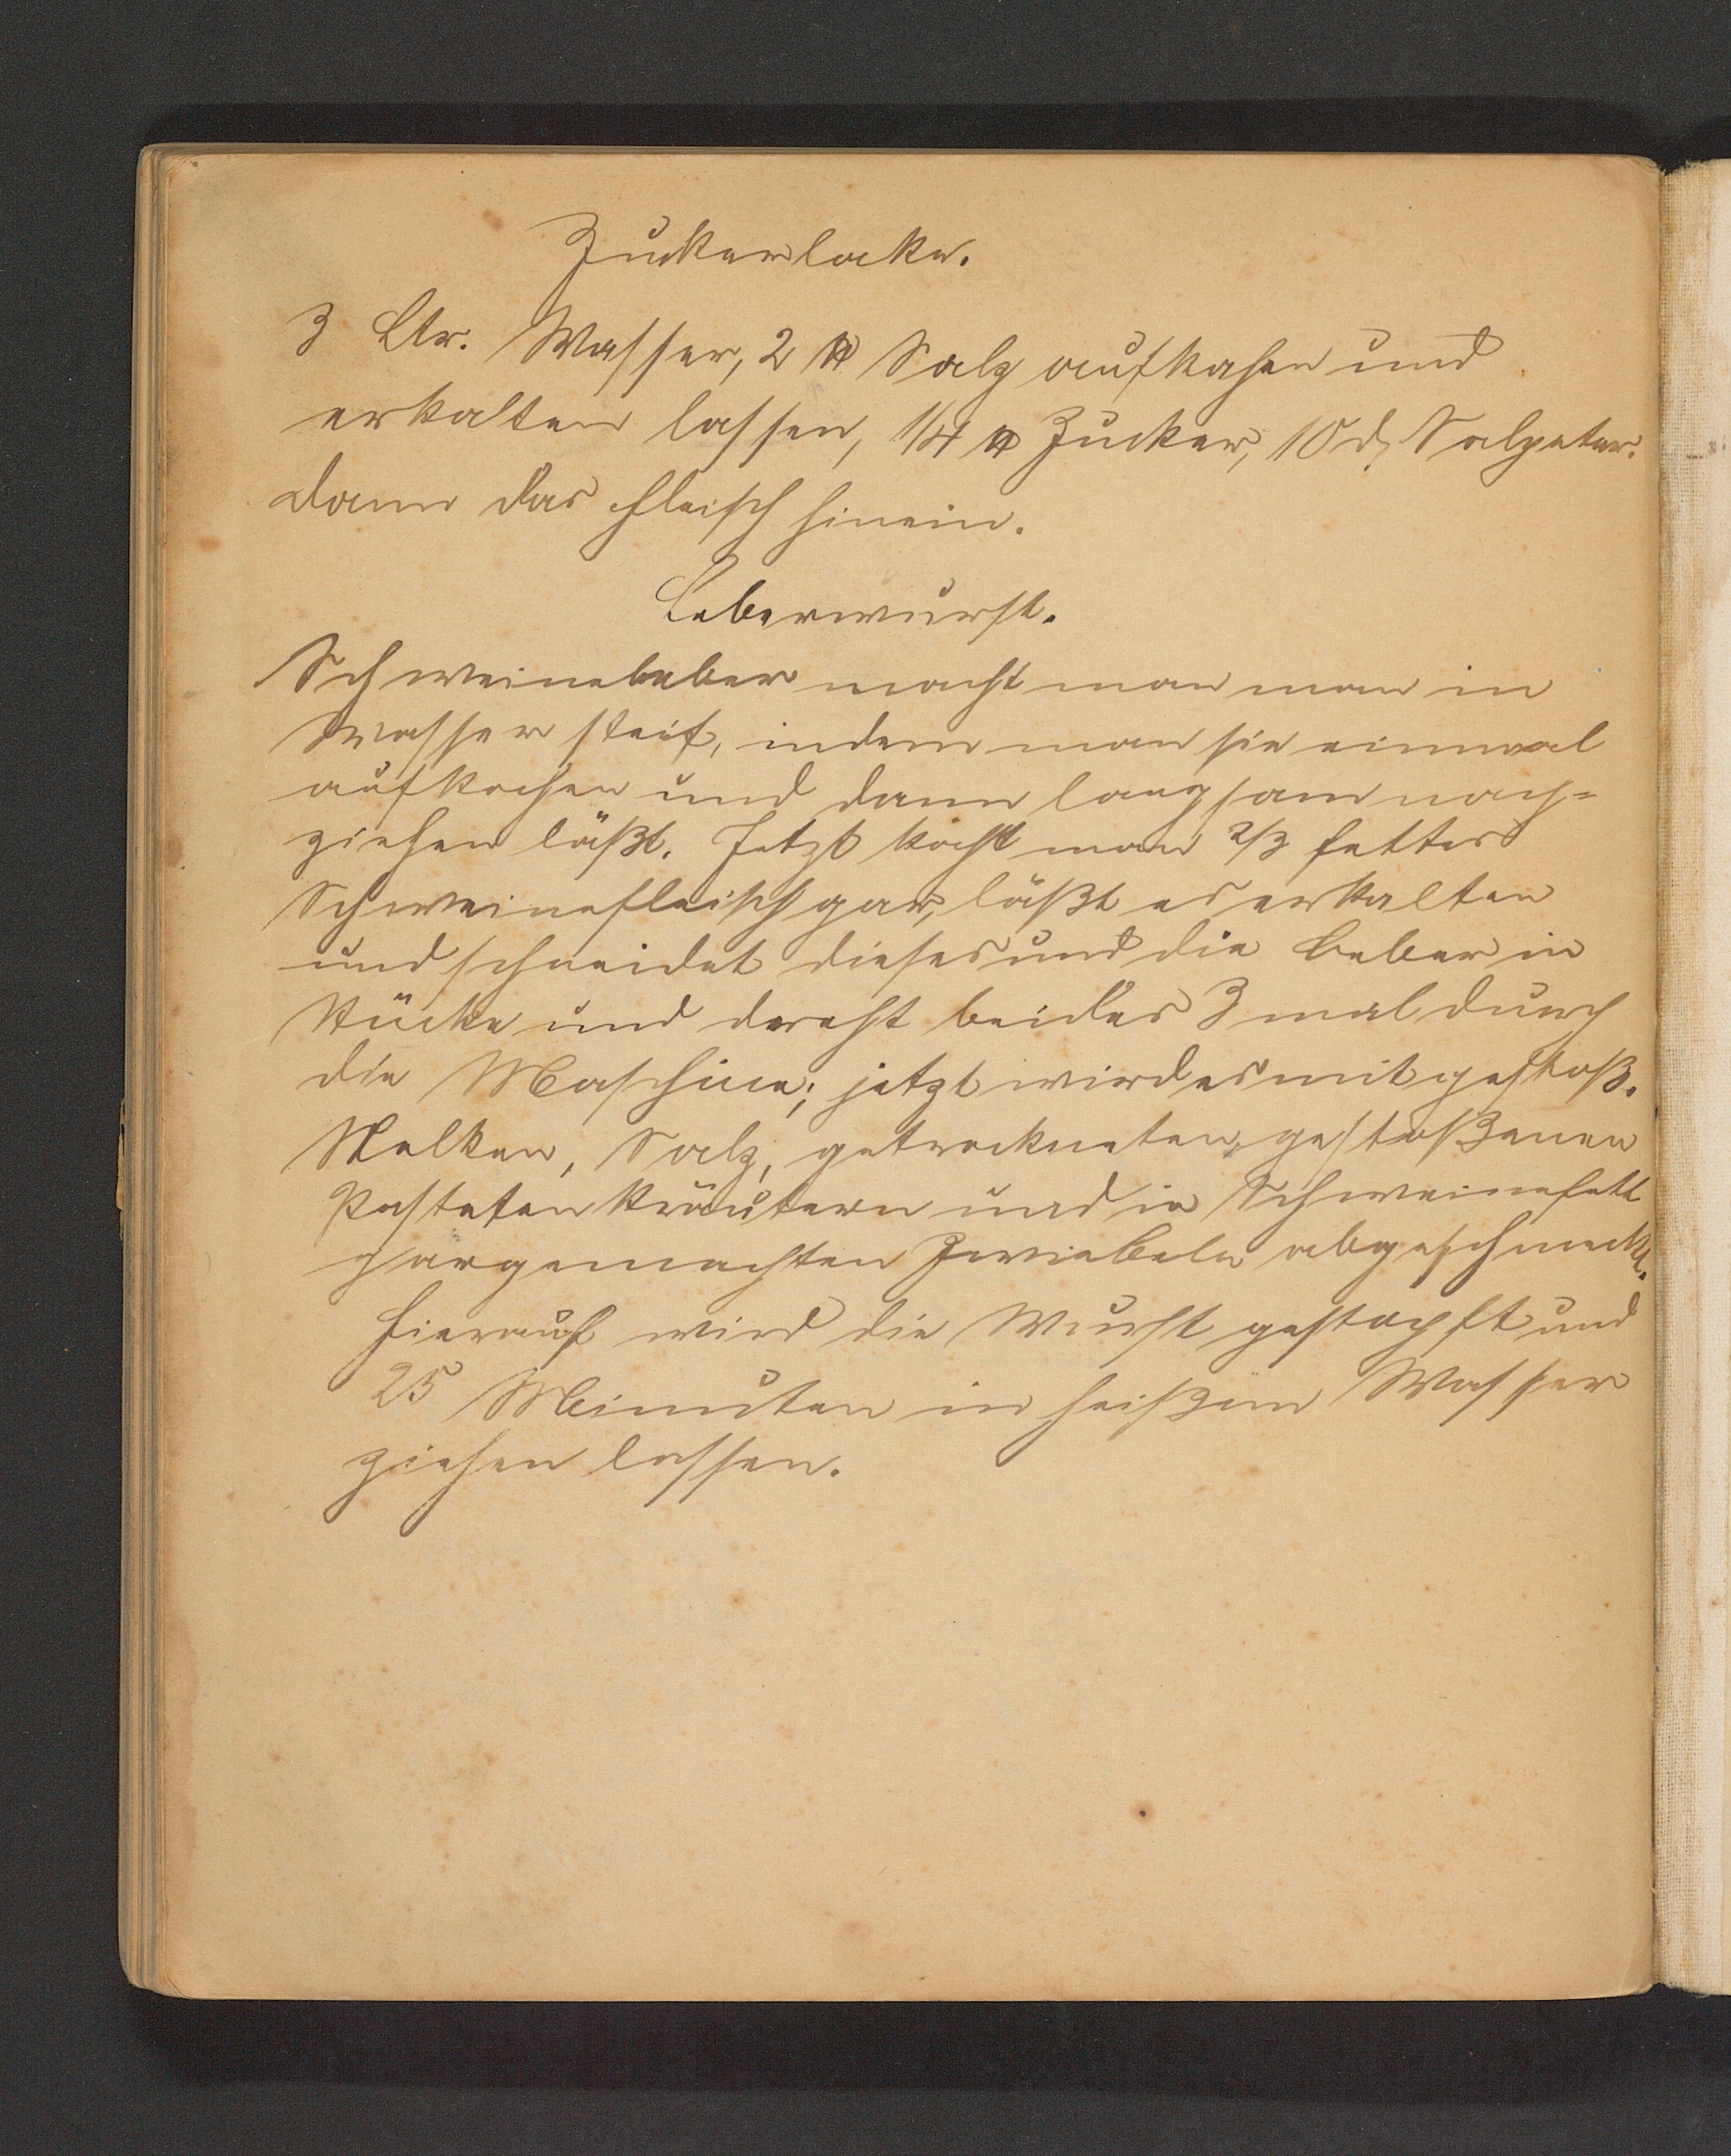 Zuckerlake.
3 Ltr. Wasser, 2 ℔ Salz aufkochen und
erkalten lassen, 1/4 ℔ Zucker, 10 d, Salpeter.
dann das Fleisch hinein.
Leberwurst.
Schweineleber macht man man in
Wasser steif, indem man sie einmal
aufkochen und dann langsam nach=
ziehen läßt. Jetzt kocht man 2/3 fettes
Schweinefleisch gar, läßt es erkalten
und schneidet dieses und die Leber in
Stücke und dreht beides 3 mal durch
die Maschine; jetzt wird es mit gestoß.
Nelken, Salz, getrockneten, gestoßenen
Pasteten kräutern und in Schweinefett
gargemachten Zwiebeln abgeschmeckt.
Hierauf wird die Wurst gestopft und
25 Minuten in heißem Wasser
ziehen lassen.